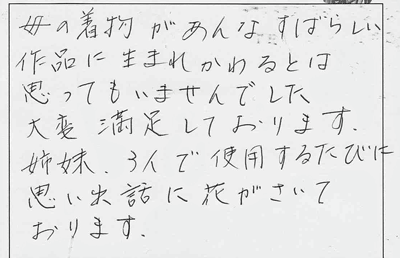 母の着物があんなすばらしい
作品に生まれかわるとは
思ってもいませんでした
大変満足しております.
姉妹.3人で使用するたびに
思い出話に花がさいて
おります.